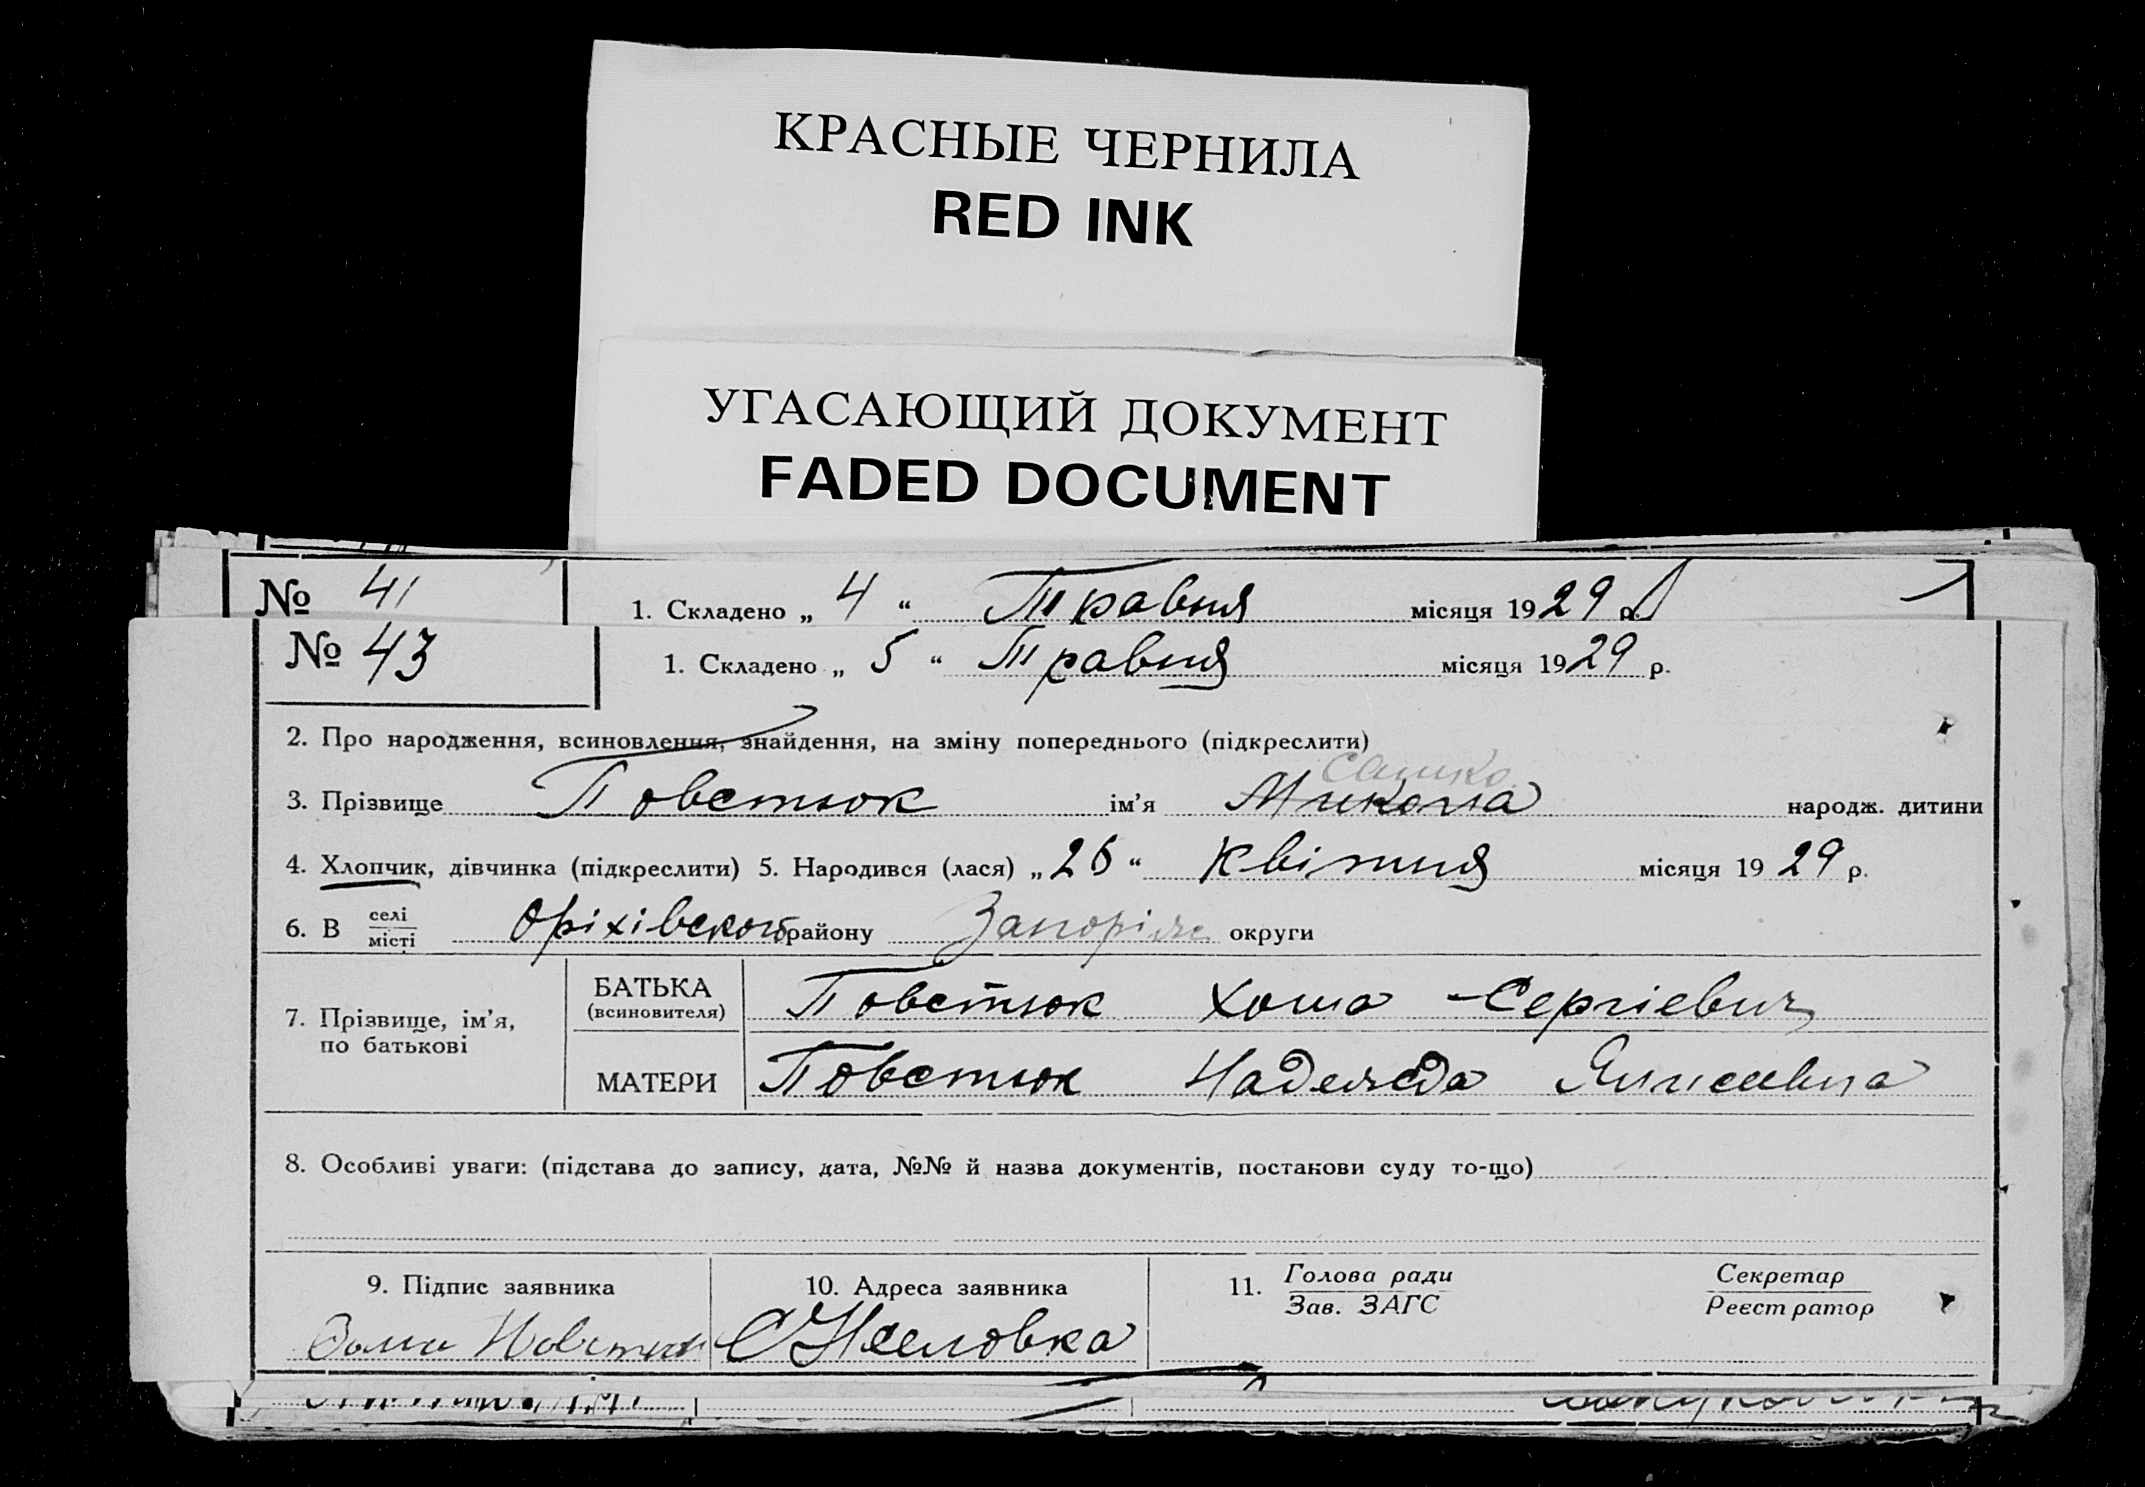 КРАСНЫЕ ЧЕРНИЛА
RED INK
УГАСАЮЩИЙ ДОКУМЕНТ
FADED DOCUMENT
№ 41 1. Складено „ 4 “ Травня місяця 1929 р.
№ 43 1. Складено „ 5 “ Травня місяця 1929 р.
2. Про народження, всиновлення, знайдення, на зміну попереднього (підкреслити)
Сашко
3. Прізвище Повстюк ім’я Микола народж. дитини
4. Хлопчик, дівчинка (підкреслити) 5. Народився (лася) „ 26 “ Квітня місяця 1929 р.
6. В селі місті Оріхівского району Запоріж округи
7. Прізвище, ім’я, по батькові
БАТЬКА (всиновителя) Повстюк Хома Сергієвич
МАТЕРИ Повстюк Надежда
8. Особливі уваги: (підстава до запису, дата, №№ й назва документів, постанови суду то-що)
9. Підпис заявника 10. Адреса заявника 11. Голова ради Зав. ЗАГС Секретар Реєстратор